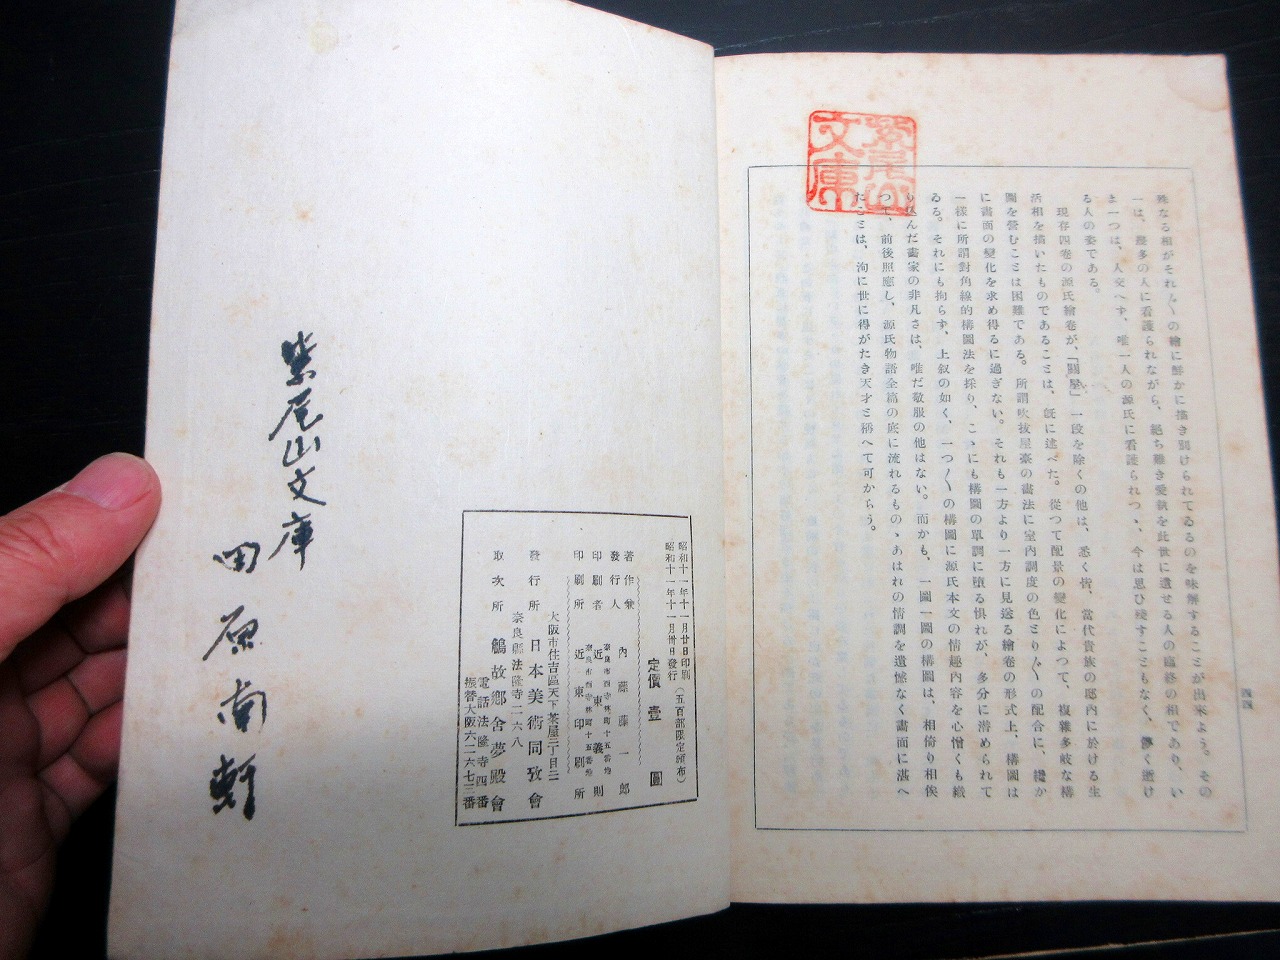 紫尾山文庫
殊なる相がそれ〴〵の繪に鮮かに描き別けられてゐるのを味解することが出來よう。その
一は、澤多の人に看護られながら、絕ち難き愛執を此世に遺せる人の臨終の相であり、い
ま一つは、人交へず、唯一人の源氏に看護られつゝ、今は思ひ殘すこともなく、儚く逝け
る人の姿である。
現存四卷の源氏繪卷が、「關屋」一段を除くの他は、悉く皆、當代貴族の邸內に於ける生
活相を描いたものであることは、旣に述べた。從つて配景の變化によつて、複雜多岐な構
圖を營むことは困難である。所謂吹拔屋臺の畫法に室內調度の色とり〴〵の配合に、纔か
に畫面の變化を求め得るに過ぎない。それも一方より一方に見送る繪卷の形式上、構圖は
一樣に所謂對角線的構圖法を採り、こゝにも構圖の單調に墮る惧れが、多分に潛められて
ゐる。それにも拘らず、上叙の如く、一つ〳〵の構圖に源氏本文の情趣內容を心憎くも織
り込んだ畫家の非凡さは、唯だ敬服の他はない。而かも、一圖一圖の構圖は、相倚り相俟
つて、前後照應し、源氏物語全篇の底に流れるものゝあはれの情調を遺憾なく畫面に湛へ
たことは、洵に世に得がたき天才と稱へて可からう。
四四
昭和十一年十一月廿日印刷
昭和十一年十一月卅日發行
（五百部限定頒布）
定價壹圓
著作兼
發行人 內藤藤一郞
奈良市西寺林町十五番地
印刷者 近東義則
奈良市西寺林町十五番地
印刷所 近東印刷所
大阪市住吉區天下茶屋三丁目三
發行所 日本美術同攷會
奈良縣法隆寺二六八
取次所 鵤故鄕舍夢殿會
電話法隆寺四番
振替大阪六二六七三番
紫尾山文庫
田原南軒